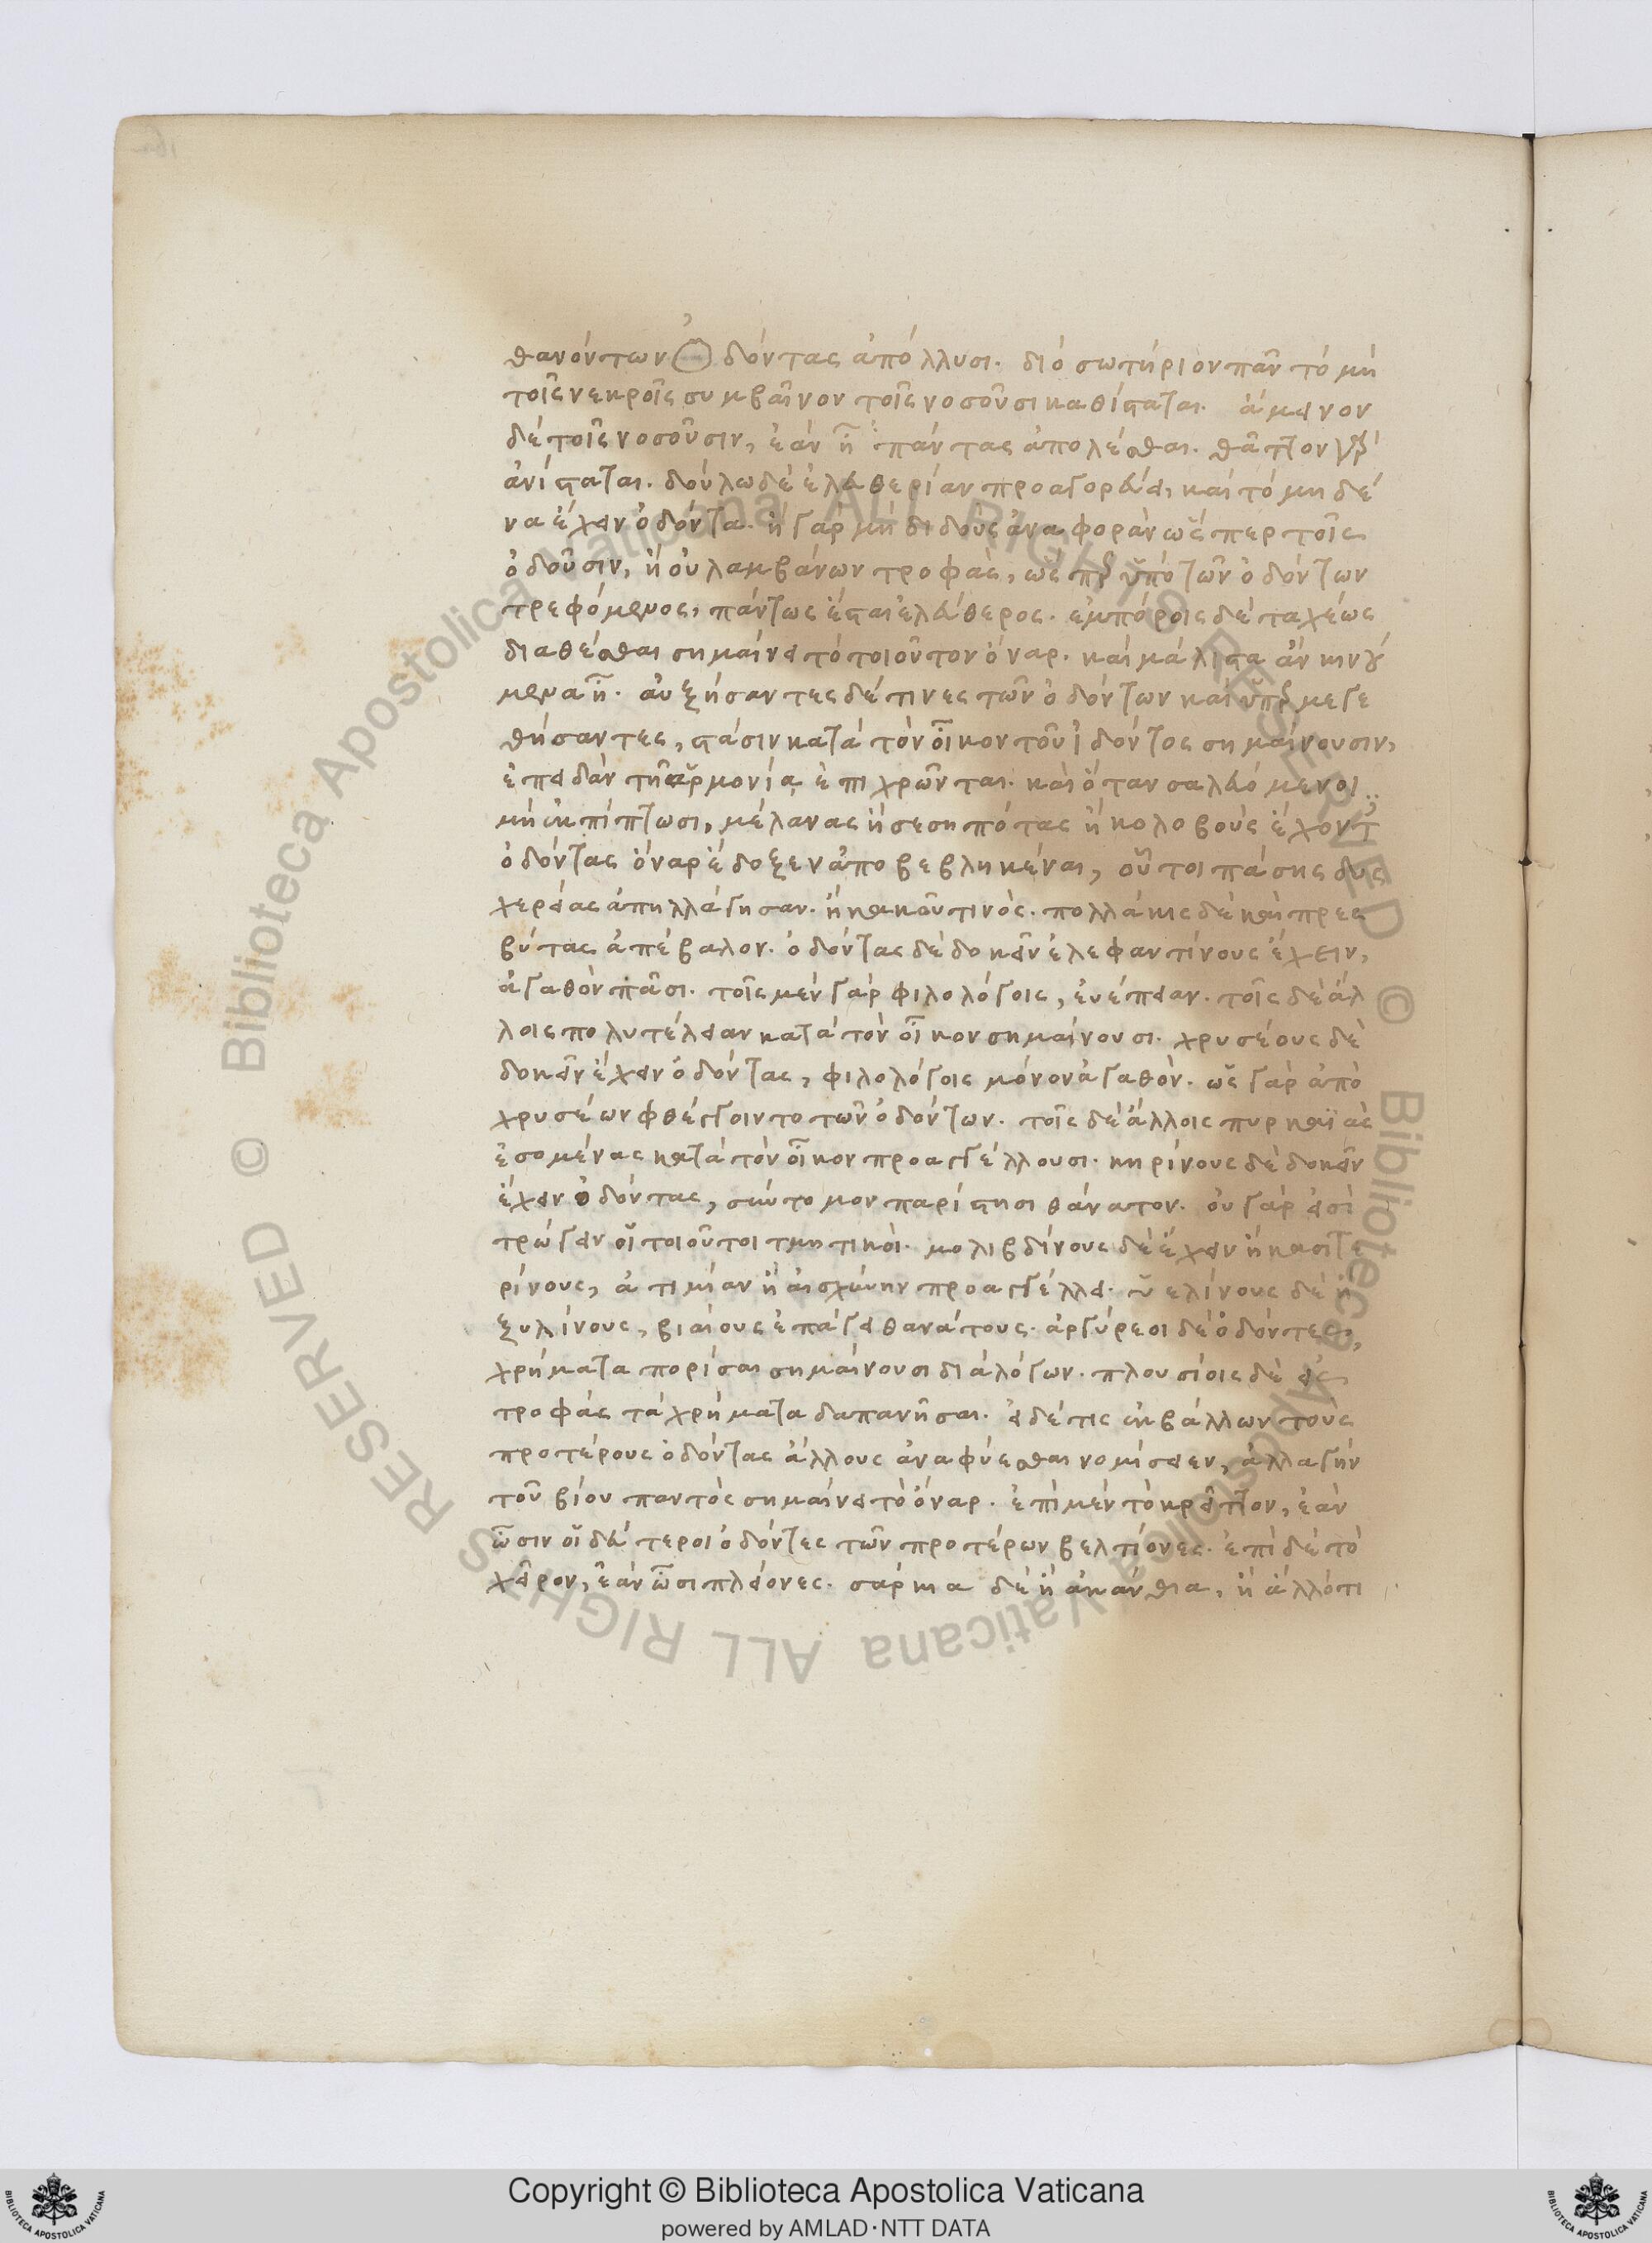 θανόντων ὀδόντας ἀπόλλυσι. διό σωτήριον πᾶν τό μή
τοῖς νεκροῖς συμβαῖνον τοῖς νοσοῦσι καθίσταται. ἄμεινον
δέ τοῖς νοσοῦσιν, ἐάν ἦ πάντας ἀπολέσθαι. θᾶττον γὰρ
ἀνίσταται. δούλω δέ ἐλευθερίαν προαγορεύει, καί τό μηδέ
να ἔχειν ὀδόντα. ἤ γάρ μή διδούς ἀναφορὰν ὥσπερ τοῖς
ὀδοῦσιν, ἤ οὐ λαμβάνων τροφὰς, ὥσπερ ὑπό τῶν ὀδόντων
τρεφόμενος, πάντως ἔσται ἐλεύθερος. ἐμπόροις δέ ταχέως
διαθέσθαι σημαίνει τό τοιοῦτον ὄναρ. καί μάλιστα ἄν κινού
μενα ἦ. αὐξήσαντες δέ τινες τῶν ὀδόντων καί ὑπερμεγε
θήσαντες, στάσιν κατά τὸν οἶκον τοῦ ἰδόντος σημαίνουσιν,
ἐπειδάν τῆ ἁρμονία ἐπιχρῶνται. καὶ ὅταν σαλευόμενοι
μή ἐκπίπτωσι, μέλανας ἤ σεσηπότας ἤ κολοβούς ἔχοντ
ὀδόντας ὄναρ ἔδοξεν ἀποβεβληκέναι, οὗτοι πάσης δυς
χερείας ἀπηλλάγησαν. ἤ κακοῦ τινός. πολλάκις δὲ καὶ πρεσ
βύτας ἀπέβαλον. ὀδόντας δέ δοκεῖν ἐλεφαντίνους ἔχειν,
ἀγαθὸν πᾶσι. τοῖς μέν γάρ φιλολόγοις, εὐέπειαν. τοῖς δέ ἄλ
λοις πολυτέλειαν κατά τόν οἶκον σημαίνουσι. χρυσέους δὲ
δοκεῖν ἔχειν ὀδόντας, φιλολόγοις μόνον ἀγαθόν. ὡς γάρ ἀπό
χρυσέων φθέγγοιντο τῶν ὀδόντων. τοῖς δέ ἄλλοις πυρκαϊὰς
ἐσομένας κατά τόν οἶκον προαγγέλλουσι. κηρίνους δέ δοκεῖν
ἔχειν ὀδόντας, σύντομον παρίστησι θάνατον. οὐ γάρ εἰσὶ
τρώγειν οἱ τοιοῦτοι τμητικοί. μολιβδίνους δέ ἔχειν ἤ κασιτε
ρίνους, ἀτιμίαν ἤ αἰσχύνην προαγγέλλει. ὑελίνους δέ ἤ
ξυλίνους, βιαίους ἐπάγει θανάτους. ἀργύρεοι δέ ὀδόντες,
χρήματα πορίσαι σημαίνουσι διά λόγων. πλουσίοις δέ εἰς
τροφάς τά χρήματα δαπανῆσαι. εἰ δέ τις ἐκβάλλων τούς
προτέρους ὀδόντας ἄλλους ἀναφύεσθαι νομίσειεν, ἀλλαγήν
τοῦ βίου παντός σημαίνει τό ὄναρ. ἐπί μέν τό κρεῖττον, ἐάν
ὦσιν οἱ δεύτεροι ὀδόντες τῶν προτέρων βελτίονες. ἐπί δέ τό
χεῖρον, ἐάν ὦσι πλείονες. σάρκια δέ ἤ ἀκάνθια, ἤ ἄλλό τι
Copyright © Biblioteca Apostolica Vaticana
powered by AMLAD·NTT DATA
© Biblioteca Apostolica Vaticana ALL RIGHTS RESERVED
© Biblioteca Apostolica Vaticana ALL RIGHTS RESERVED
BIBLIOTECA APOSTOLICA VATICANA
BIBLIOTECA APOSTOLICA VATICANA